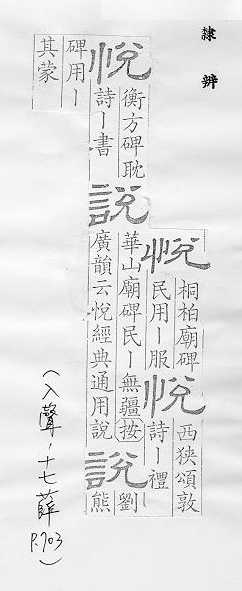 隸辨
悅
桐柏廟碑
民用丨服
悅
西狹頌敦
詩丨禮
悅
衡方碑耽
詩丨書
說
華山廟碑民丨無疆按
廣韻云悅經典通用說
說
劉
熊
碑用丨
其蒙
(入聲.十七薛 P.703)